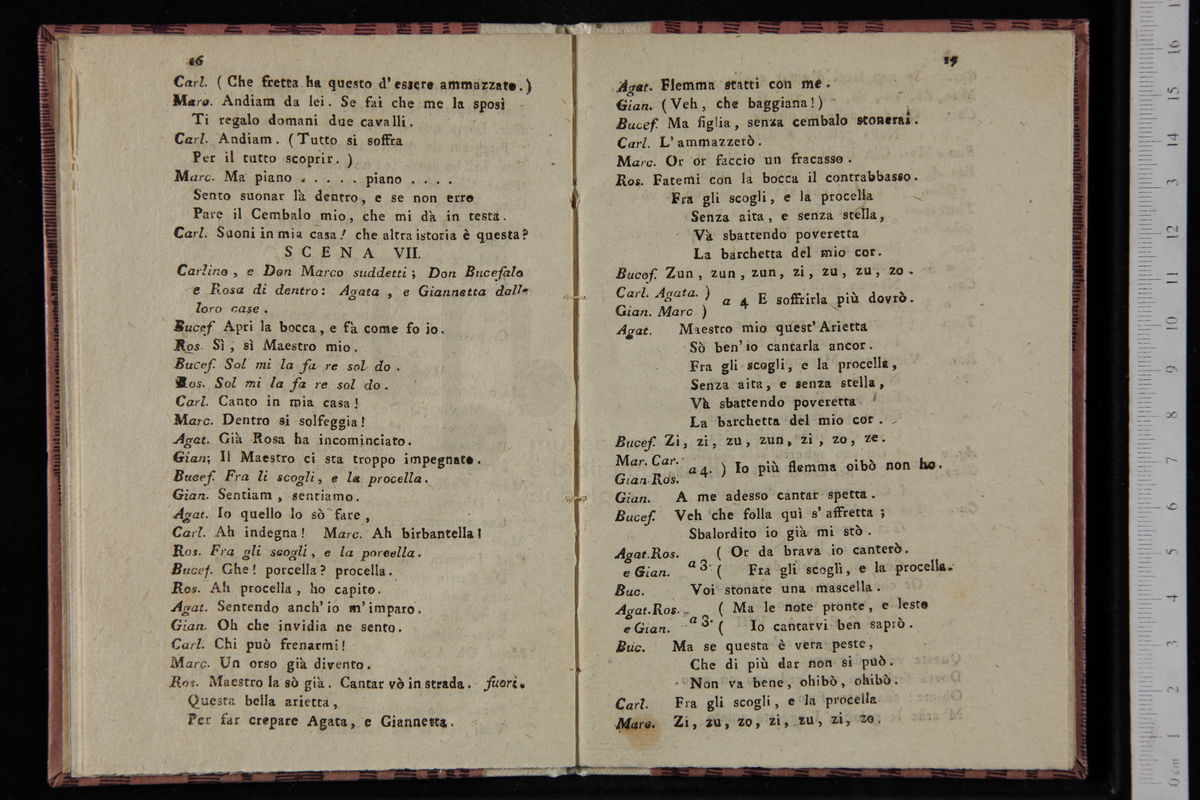 16
Carl. ( Che fretta ha questo d'essere ammazzato. )
Marc. Andiam da lei. Se fai che me la sposi
Ti regalo domani due cavalli.
Carl. Andiam. ( Tutto si soffra
Per il tutto scoprir. )
Marc. Ma piano . . . . . piano . . . .
Sento suonar là dentro, e se non erro
Pare il Cembalo mio, che mi dà in testa.
Carl. Suoni in mia casa! che altra istoria è questa?
SCENA VII.
Carlino, e Don Marco suddetti; Don Bucefalo
e Rosa di dentro: Agata, e Giannetta dalle
loro case.
Bucef Apri la bocca, e fà come fo io.
Ros. Sì, sì Maestro mio.
Bucef. Sol mi la fa re sol do.
Ros. Sol mi la fa re sol do.
Carl. Canto in mia casa!
Marc. Dentro si solfeggia!
Agat. Già Rosa ha incominciato.
Gian; Il Maestro ci sta troppo impegnato.
Bucef. Fra li scogli, e la procella.
Gian. Sentiam, sentiamo.
Agat. Io quello lo sò fare,
Carl. Ah indegna! Marc. Ah birbantella!
Ros. Fra gli scogli, e la porcella.
Bucef. Che! porcella? procella.
Ros. Ah procella, ho capito.
Agat. Sentendo anch'io m'imparo.
Gian. Oh che invidia ne sento.
Carl. Chi può frenarmi!
Marc. Un orso già divento.
Ros. Maestro la sò già. Cantar vò in strada. fuori.
Questa bella arietta,
Per far crepare Agata, e Giannetta.
Agat. Flemma statti con me.
Gian. ( Veh, che baggiana! )
Bucef. Ma figlia, senza cembalo stonerai.
Carl. L'ammazzerò.
Marc. Or or faccio un fracasso.
Ros. Fatemi con la bocca il contrabbasso.
Fra gli scogli, e la procella
Senza aita, e senza stella,
Và sbattendo poveretta
La barchetta del mio cor.
Bucef. Zun, zun, zun, zi, zu, zu, zo.
Carl. Agata. )
a 4 E soffrirla più dovrò.
Gian. Marc )
Agat. Maestro mio quest'Arietta
Sò ben'io cantarla ancor.
Fra gli scogli, e la procella,
Senza aita, e senza stella,
Và sbattendo poveretta
La barchetta del mio cor.
Bucef. Zi, zi, zu, zun, zi, zo, ze.
Mar. Car.
a 4. ) Io più flemma oibò non ho.
Gian Ros.
Gian. A me adesso cantar spetta.
Bucef. Veh che folla quì s'affretta;
Sbalordito io già mi stò.
Agat.Ros. ( Or da brava io canterò.
e Gian. a 3. ( Fra gli scoglì, e la procella.
Buc. Voi stonate una mascella.
Agat.Ros. ( Ma le note pronte, e leste
e Gian. a 3. ( Io cantarvi ben saprò.
Buc. Ma se questa è vera peste,
Che di più dar non si può.
Non va bene, ohibò, ohibò.
Carl. Fra gli scogli, e la procella
Marc. Zi, zu, zo, zi, zu, zi, zo.